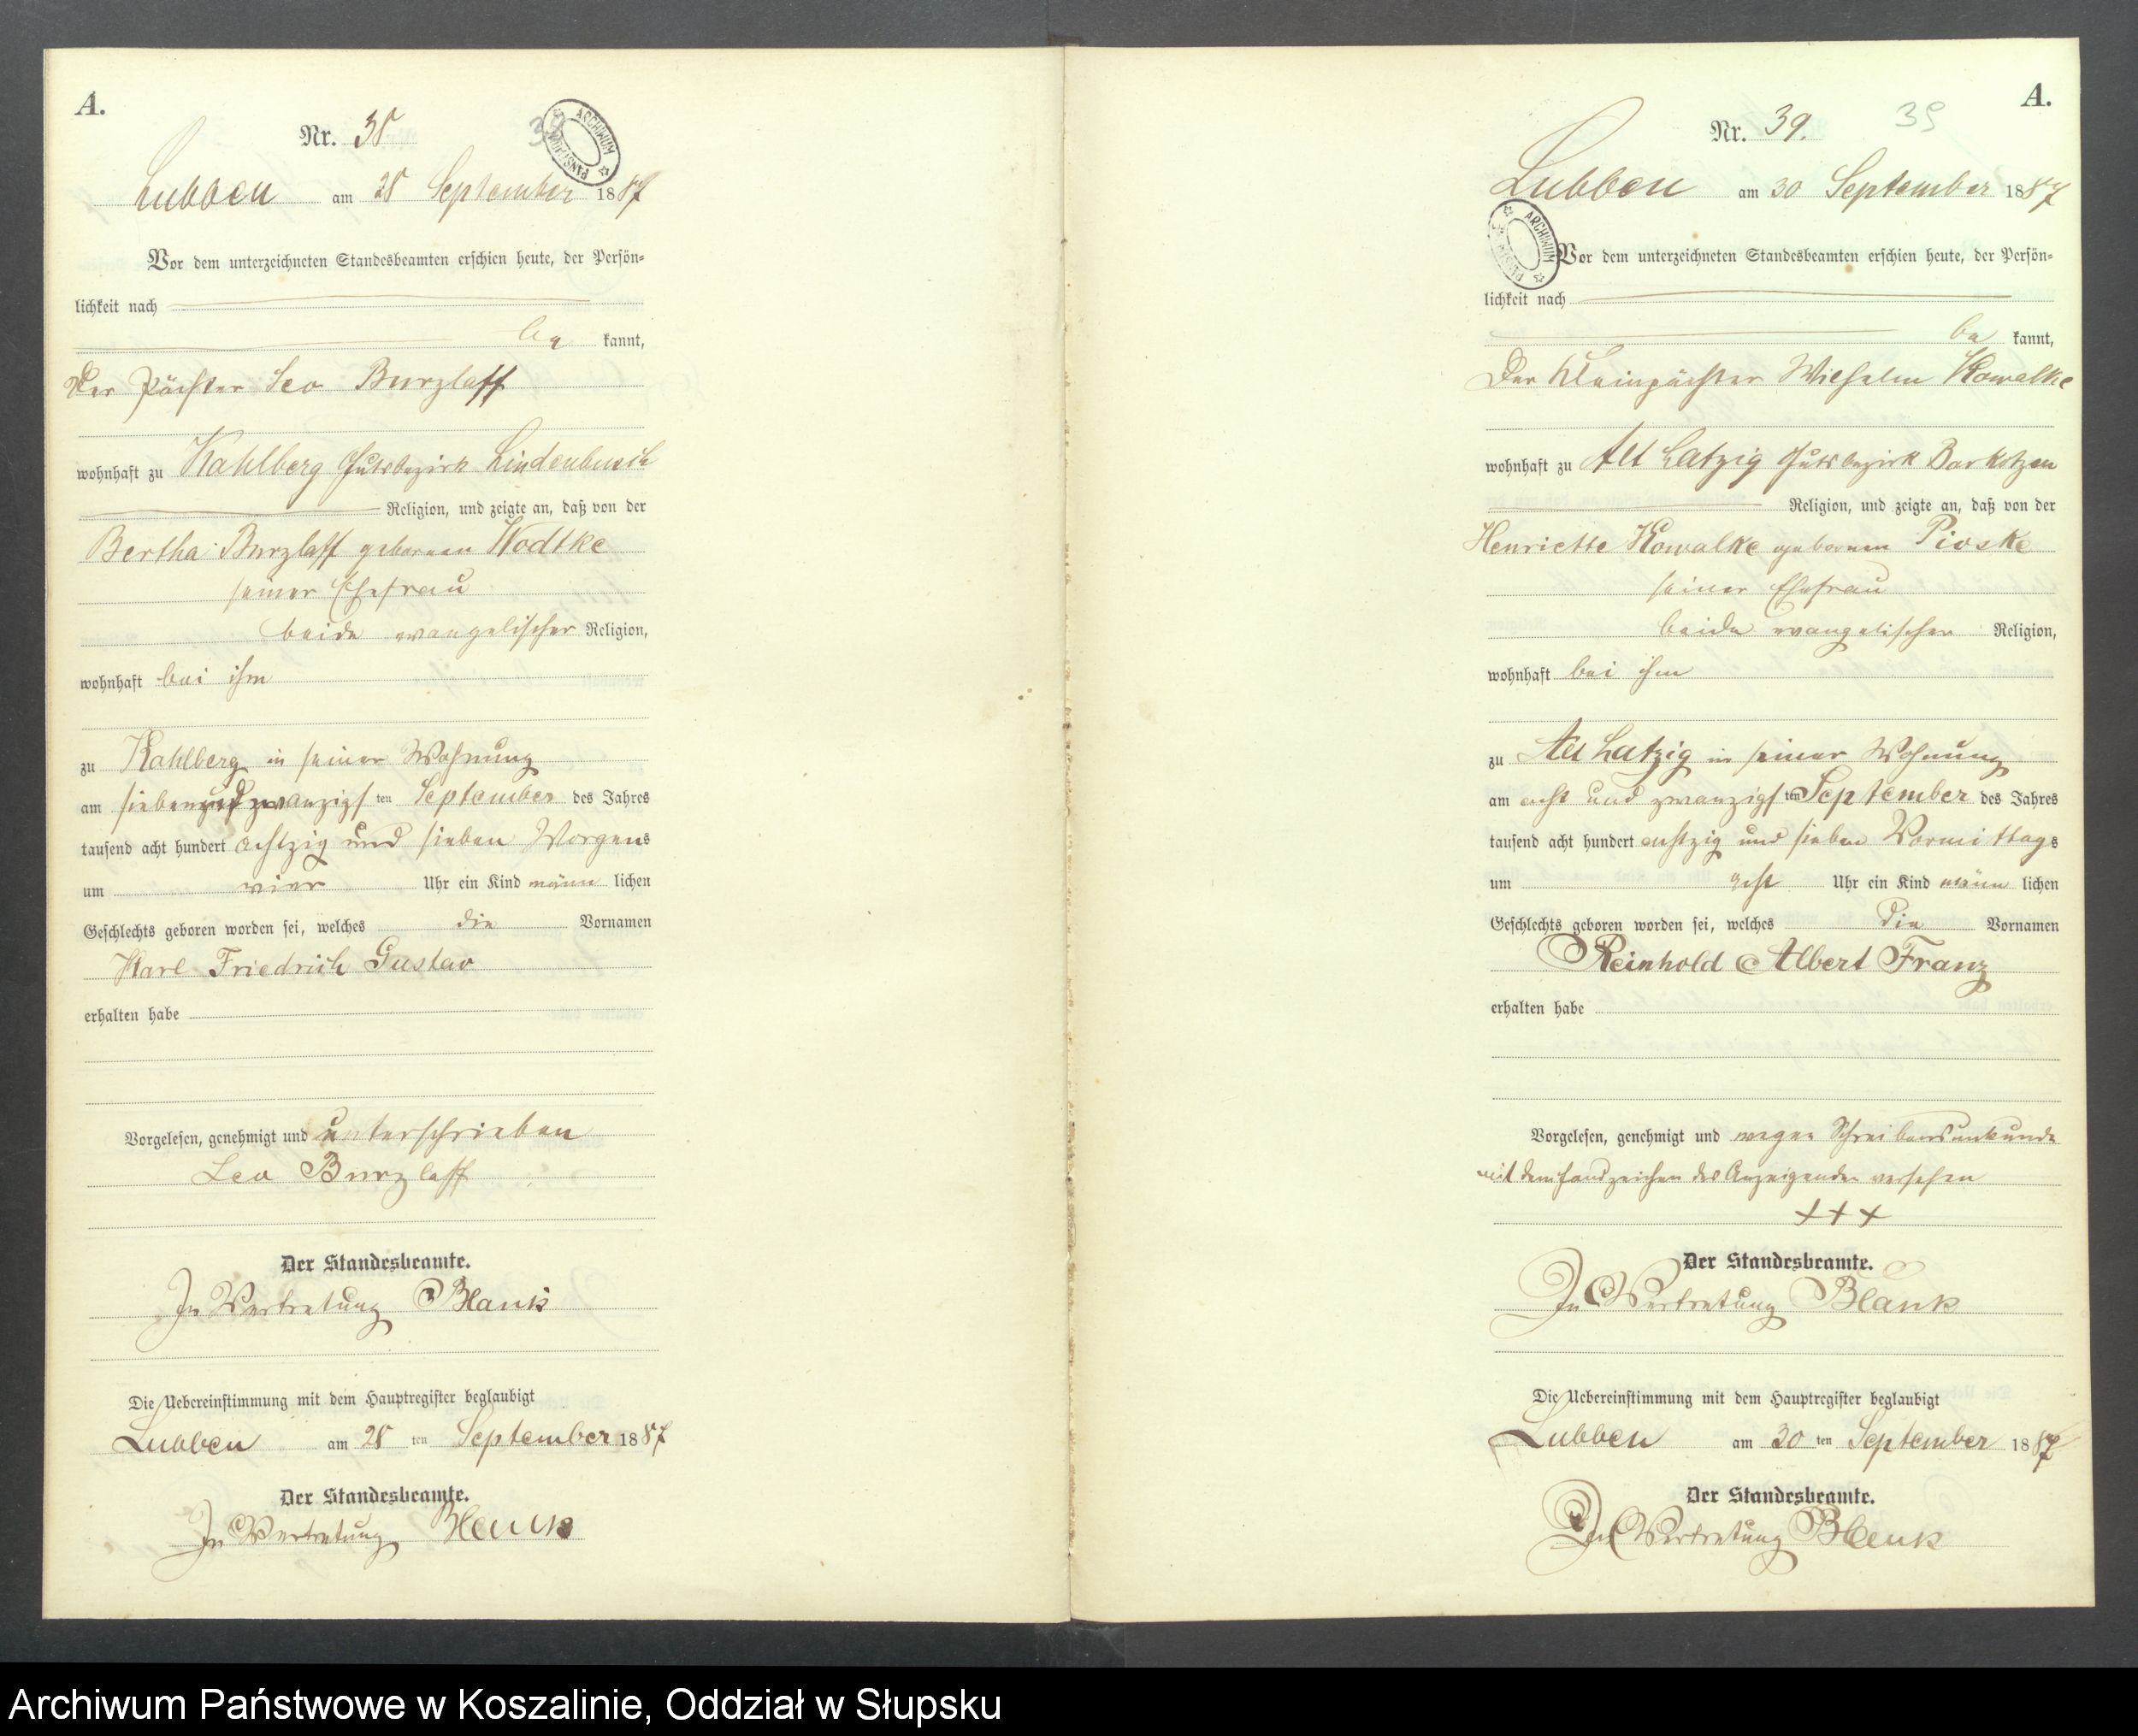 A.
Nr. 38
ARCHIWUM PAŃSTWOWE
Lubben am 28 September 1887
Vor dem unterzeichneten Standesbeamten erschien heute, der Persön-
lichkeit nach
be kannt,
Der Pächter Leo Burzlaff
wohnhaft zu Kahlberg Gutsbezirk Lindenbusch
Religion, und zeigte an, daß von der
Bertha Burzlaff geborenen Wodtke
seiner Ehefrau
beide evangelischer Religion,
wohnhaft bei ihm
zu Kahlberg in seiner Wohnung
am siebenundzwanzigs ten September des Jahres
tausend acht hundert achtzig und sieben Morgens
um vier Uhr ein Kind männ lichen
Geschlechts geboren worden sei, welches die Vornamen
Karl Friedrich Gustav
erhalten habe
Vorgelesen, genehmigt und unterschrieben
Leo Burzlaff
Der Standesbeamte.
In Vertretung Blank
Die Uebereinstimmung mit dem Hauptregister beglaubigt
Lubben am 28 ten September 1887
Der Standesbeamte.
In Vertretung Blank
A.
Nr. 39. 39
Lubben am 30 September 1887
ARCHIWUM
Vor dem unterzeichneten Standesbeamten erschien heute, der Persön-
lichkeit nach
be kannt,
Der Kleinpächter Wilhelm Kowalke
wohnhaft zu Alt Latzig Gutsbezirk Barkotzen
Religion, und zeigte an, daß von der
Henriette Kowalke geborenen Pioske
seiner Ehefrau
beide evangelischer Religion,
wohnhaft bei ihm
zu Alt Latzig in seiner Wohnung
am acht und zwanzigs ten September des Jahres
tausend acht hundert achtzig und sieben Vormittags
um acht Uhr ein Kind männ lichen
Geschlechts geboren worden sei, welches die Vornamen
Reinhold Albert Franz
erhalten habe
Vorgelesen, genehmigt und wegen Schreibensunkunde
mit dem Handzeichen des Anzeigenden versehen
+++
Der Standesbeamte.
In Vertretung Blank
Die Uebereinstimmung mit dem Hauptregister beglaubigt
Lubben am 30 ten September 1887
Der Standesbeamte.
In Vertretung Blank
Archiwum Państwowe w Koszalinie, Oddział w Słupsku